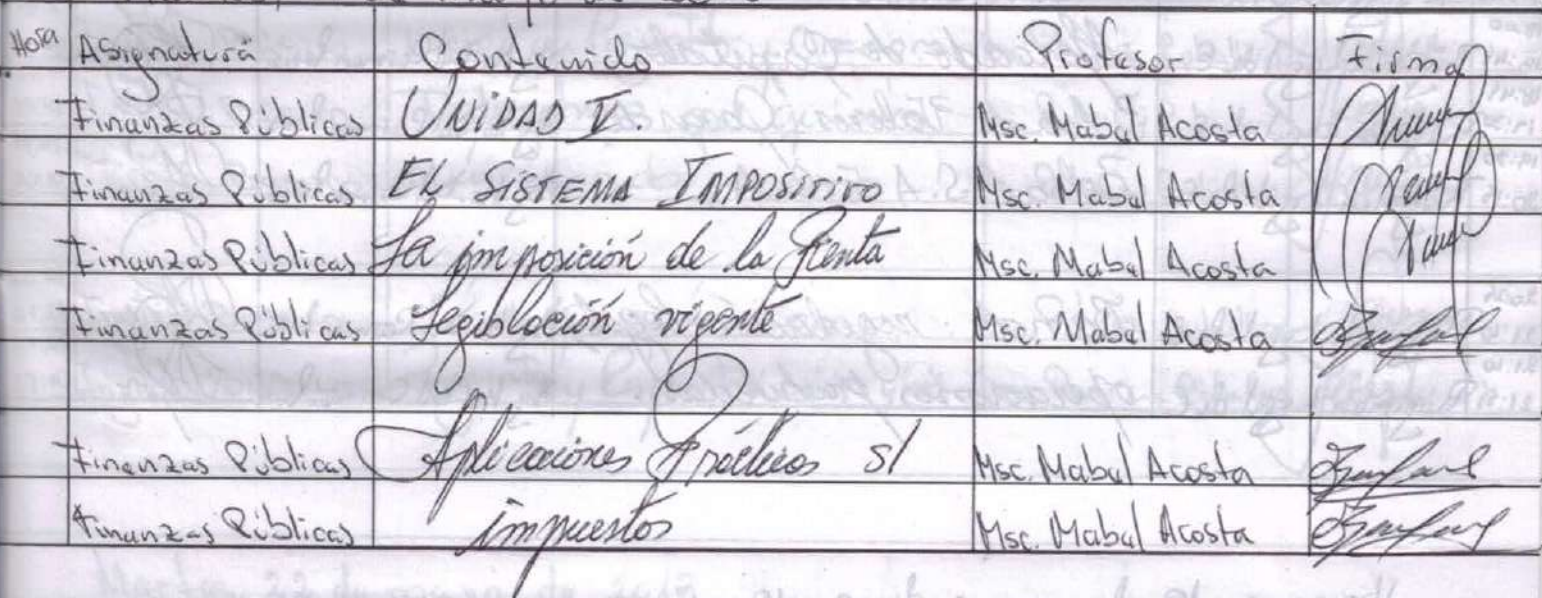 Hora Asignatura Contenido Profesor Firma
Finanzas Públicas UNIDAD V. Msc. Mabel Acosta
Finanzas Públicas EL SISTEMA IMPOSITIVO Msc. Mabel Acosta
Finanzas Públicas La imposición de la Renta Msc. Mabel Acosta
Finanzas Públicas Legislación vigente Msc. Mabel Acosta
Finanzas Públicas Aplicaciones Prácticas s/ Msc. Mabel Acosta
Finanzas Públicas impuestos Msc. Mabel Acosta